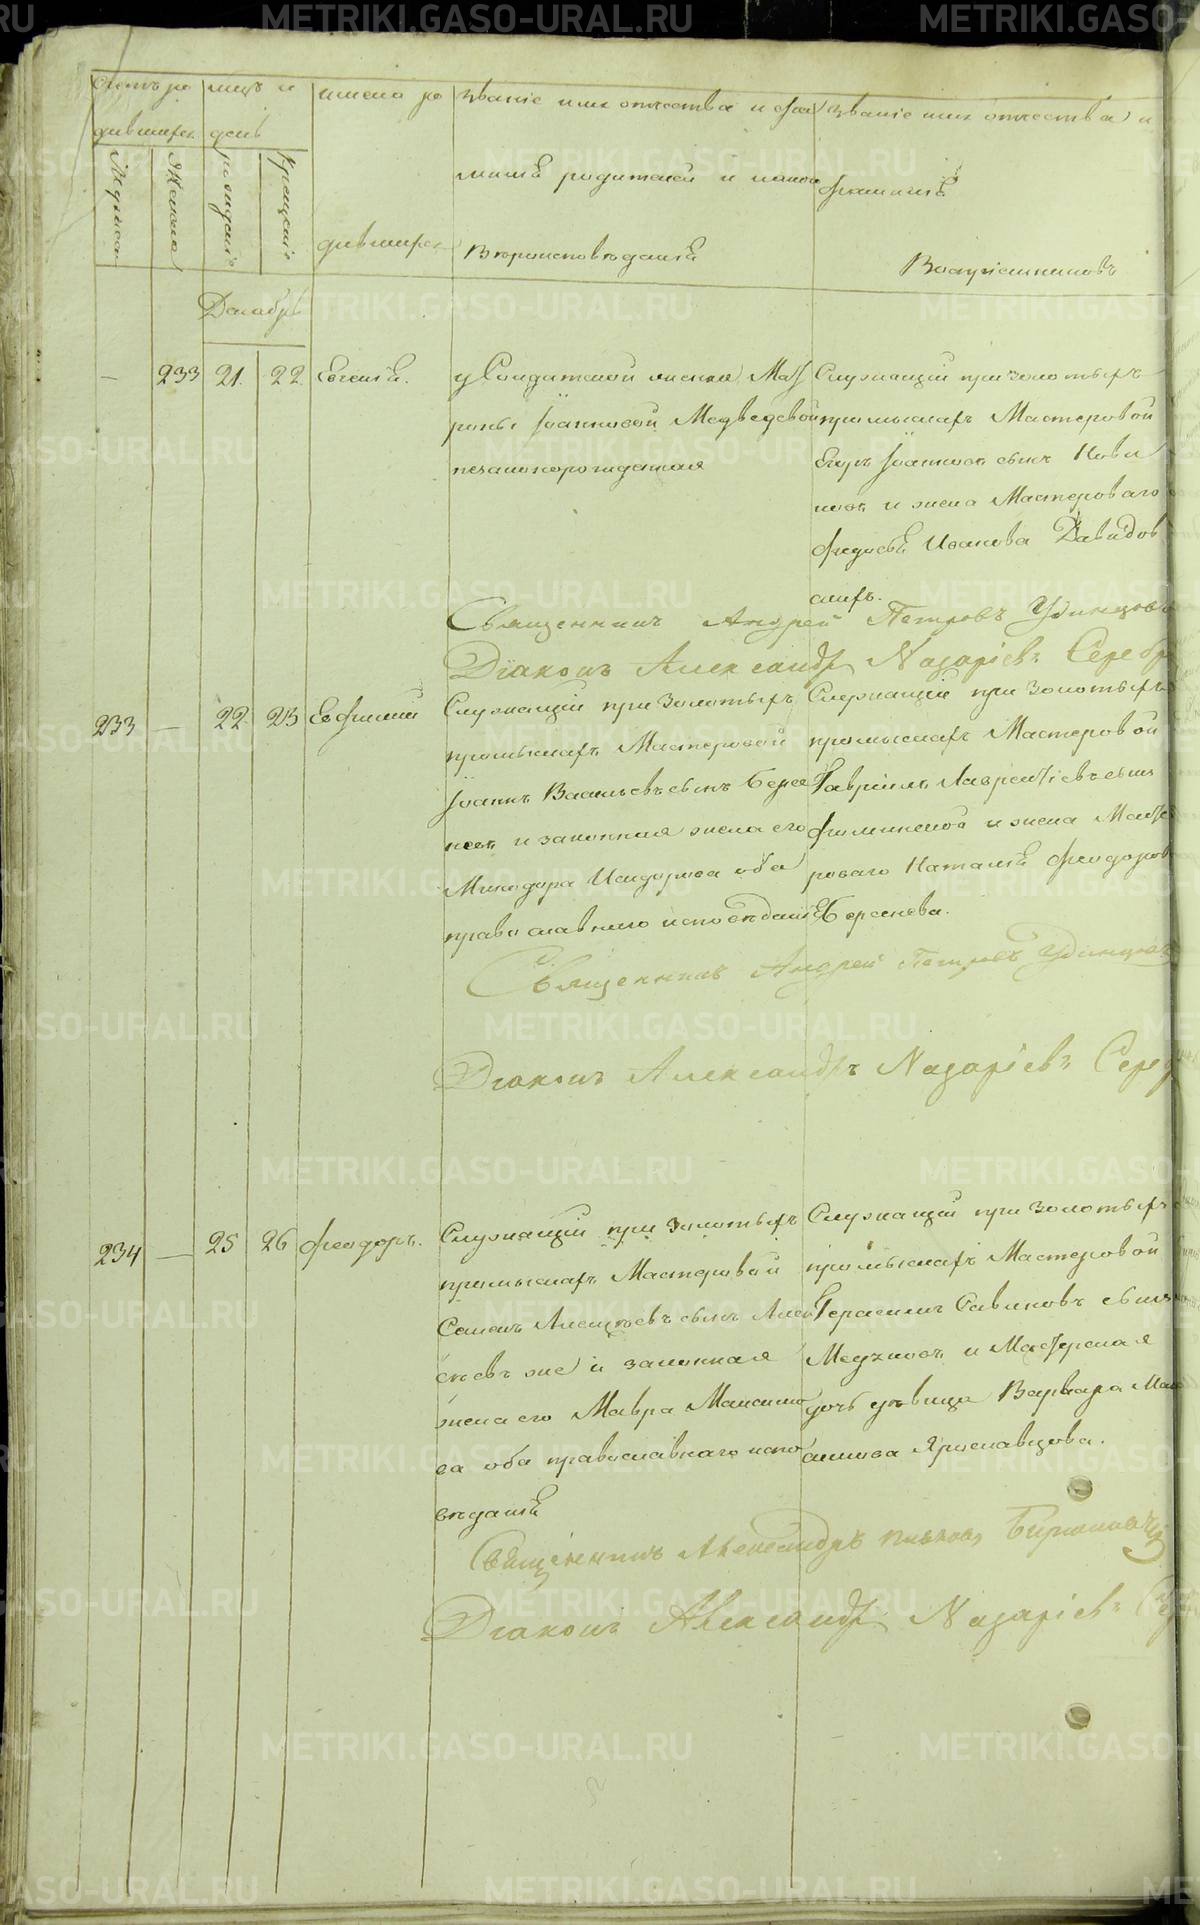 Счетъ ро
дившихся
Мужеска
Женска
мцъ и
день
рожденія
крещенія
имена ро
дившихся
Званіе имя отчества и фа
миліи родителей и какого
Вероисповѣданія
Званіе имя отчества и
фамилія
Воспріемниковъ
Декабрь
— 233 21. 22. Евгенія.
у Солдатской женки Мат
роны Іоанновой Медведевой
незаконорожденная
Служащій при золотыхъ
промыслахъ Мастеровой
Егоръ Іоанновъ сынъ
и жена Мастероваго
Федосья Иванова Давидов
Священникъ Андрей Петровъ Удинцовъ
Діаконъ Александръ Назаріевъ Серебр
233 — 22. 23 Евфимий
Служащій при Золотыхъ
промыслахъ Мастеровой
Іоаннъ Васильевъ сынъ Берсе
невъ и законная жена его
Минодора Исидорова оба
православнаго исповѣданія
Служащій при Золотыхъ
промыслахъ Мастеровой
Гавріилъ Лаврентіевъ сынъ
и жена Масте
роваго Наталія Феодоров
Берсенева.
Священникъ Андрей Петровъ Удинцовъ
Діаконъ Александръ Назаріевъ Сереб
234 — 25 26 Феодоръ.
Служащій при Золотыхъ
промыслахъ Мастеровой
Семенъ Алексѣевъ сынъ Алек
сѣевъ же и законная
жена его Мавра Максимо
ва оба православнаго испо
вѣданія
Служащій при Золотыхъ
промыслахъ Мастеровой
Герасимъ Савиновъ сынъ
и Мастерская
дочь дѣвица Варвара Мак
симова Ярославцова.
Священникъ Александръ
Діаконъ Александръ Назаріевъ Се
METRIKI.GASO-URAL.RU